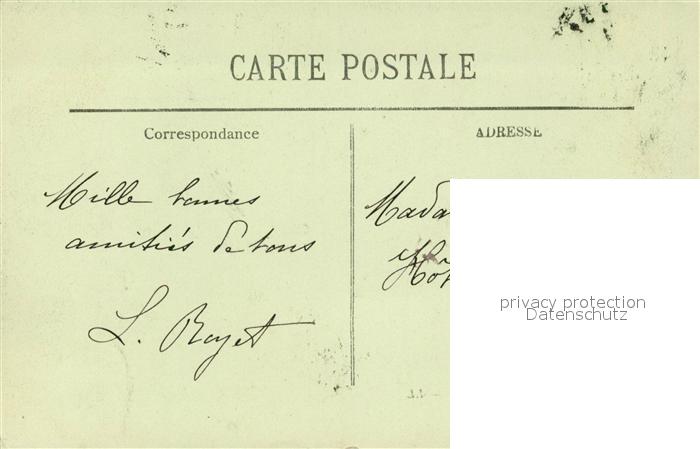 CARTE POSTALE
Correspondance
ADRESSE
Mille bonnes
amitiés de tous
L. Royet
Mada
Hôt
privacy protection
Datenschutz